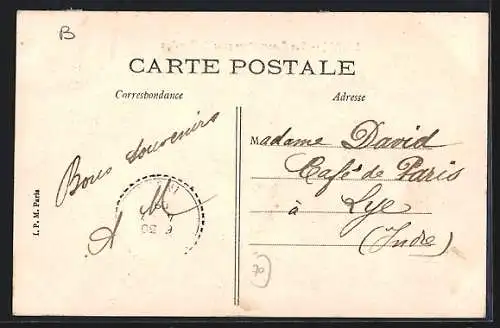 B
CARTE POSTALE
Correspondance
Adresse
Bons souvenirs
A M
Madame David
Café de Paris
à Lye
(Indre)
70
I. P. M. Paris